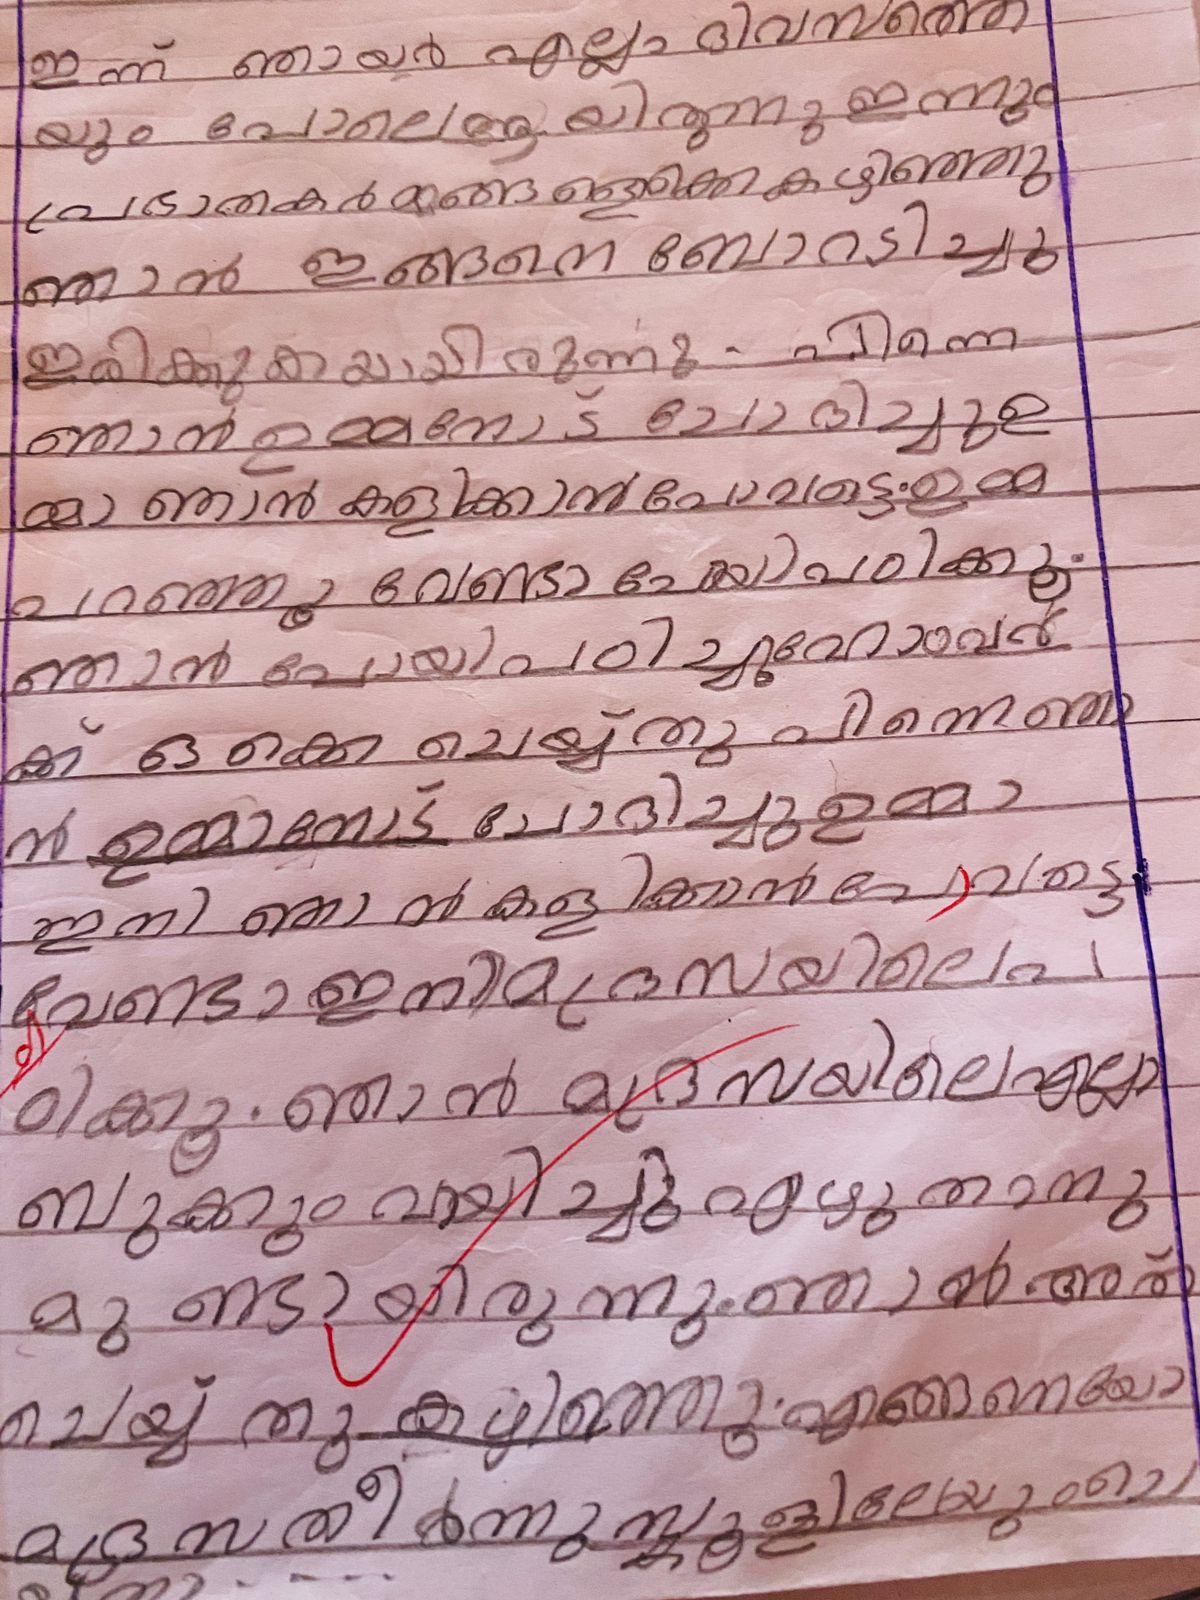 ഇന്ന് ഞായർ എല്ലാ ദിവസത്തെ
യും പോലെആയിരുന്നു ഇന്നും
പ്രഭാതകർമങ്ങളൊക്കെകഴിഞ്ഞു
ഞാൻ ഇങ്ങനെ ബോറടിച്ചു
ഇരിക്കുകയായിരുന്നു. പിന്നെ
ഞാൻ ഉമ്മനോട് ചോദിച്ചുഉ
മ്മാ ഞാൻ കളിക്കാൻപോവട്ടെ.ഉമ്മ
പറഞ്ഞു വേണ്ടാ പോയിപഠിക്കൂ.
ഞാൻ പോയിപഠിച്ചുഹോംവർ
ക്ക് ഒക്കെ ചെയ്യ്തു പിന്നെഞാ
ൻ ഉമ്മാനോട് ചോദിച്ചുഉമ്മാ
ഇനി ഞാൻ കളിക്കാൻപോവട്ടെ
വേണ്ടാഇനിമദ്രസയിലെപ
ഠിക്കൂ. ഞാൻ മദ്രസയിലെഎല്ലാ
ബുക്കും വായിച്ചു എഴുതാനു
മുണ്ടായിരുന്നു. ഞാൻ.അത്
ചെയ്യ്തു കഴിഞ്ഞു. എങ്ങനെയോ
മദ്രസതീർന്നുസ്കൂളിലേയുംചെ